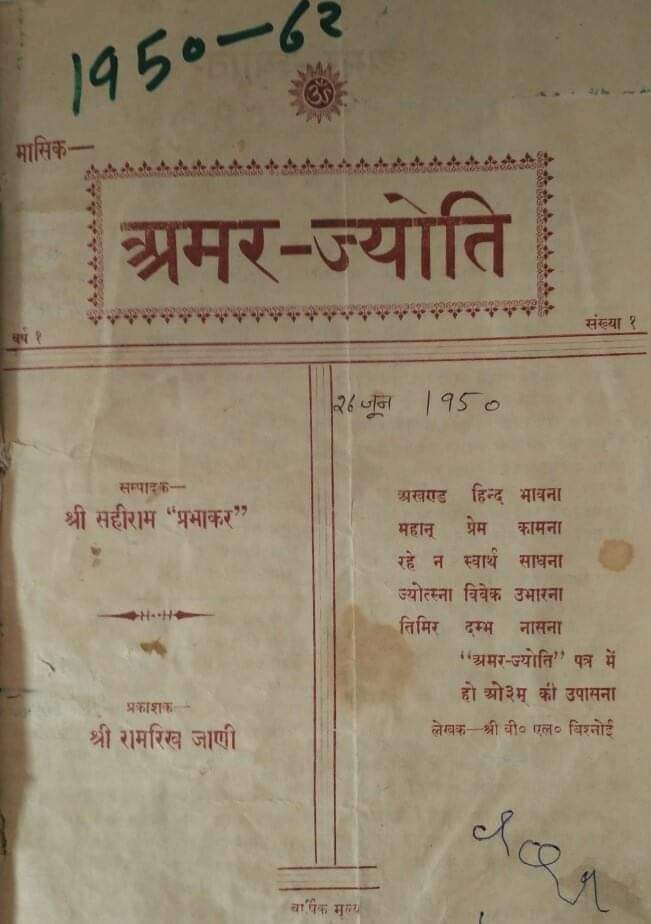 1950-62
ॐ
मासिक—
अमर-ज्योति
वर्ष १
संख्या १
26 जून 1950
सम्पादक—
श्री सहीराम “प्रभाकर”
प्रकाशक—
श्री रामरिख जाणी
अखण्ड हिन्द भावना
महान् प्रेम कामना
रहे न स्वार्थ साधना
ज्योत्स्ना विवेक उभारना
तिमिर दम्भ नासना
“अमर-ज्योति” पत्र में
हो ओ३म् की उपासना
लेखक—श्री वी० एल० बिश्नोई
वार्षिक मूल्य